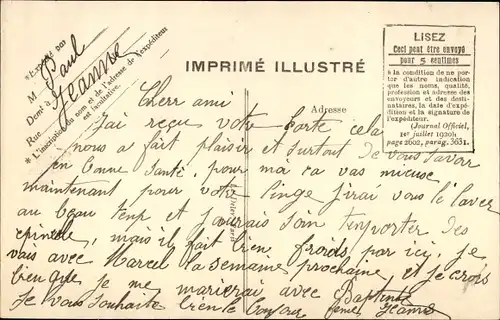 *Expédié par
M Paul
Dont à Jeanne
Rue
* L'inscription du nom et de l'adresse de l'expéditeur
est facultative.
IMPRIMÉ ILLUSTRÉ
Adresse
LISEZ
Ceci peut être envoyé
pour 5 centimes
à la condition de ne por-
ter d'autre indication
que les noms, qualité,
profession et adresse des
envoyeurs et des desti-
nataires, la date d'expé-
dition et la signature de
l'expéditeur.
(Journal Officiel,
1er juillet 1920);
page 2602, parag. 3631.
Cherr ami
J'ai reçu votre carte cela
nous a fait plaisir et surtout de vous savoir
en bonne santé, pour mà ca vas mieuse
maintenant pour votre linge j'irai vous le laver
au beau temp et j'aurais soin t'emporter des
epinele, mais il fait bien froids par ici, je
vais avec Marcel la semaine prochaine et je crois
bien que je me marierai avec Baptiste
Je vous souhaite bien le bonjour Jeanne